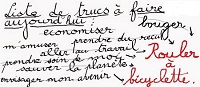 Liste de trucs à faire
aujourd'hui :
bouger
économiser
m'amuser prendre du recul
aller au travail
prendre soin de moi
sauver la planète
envisager mon avenir
Rouler
à
bicyclette.